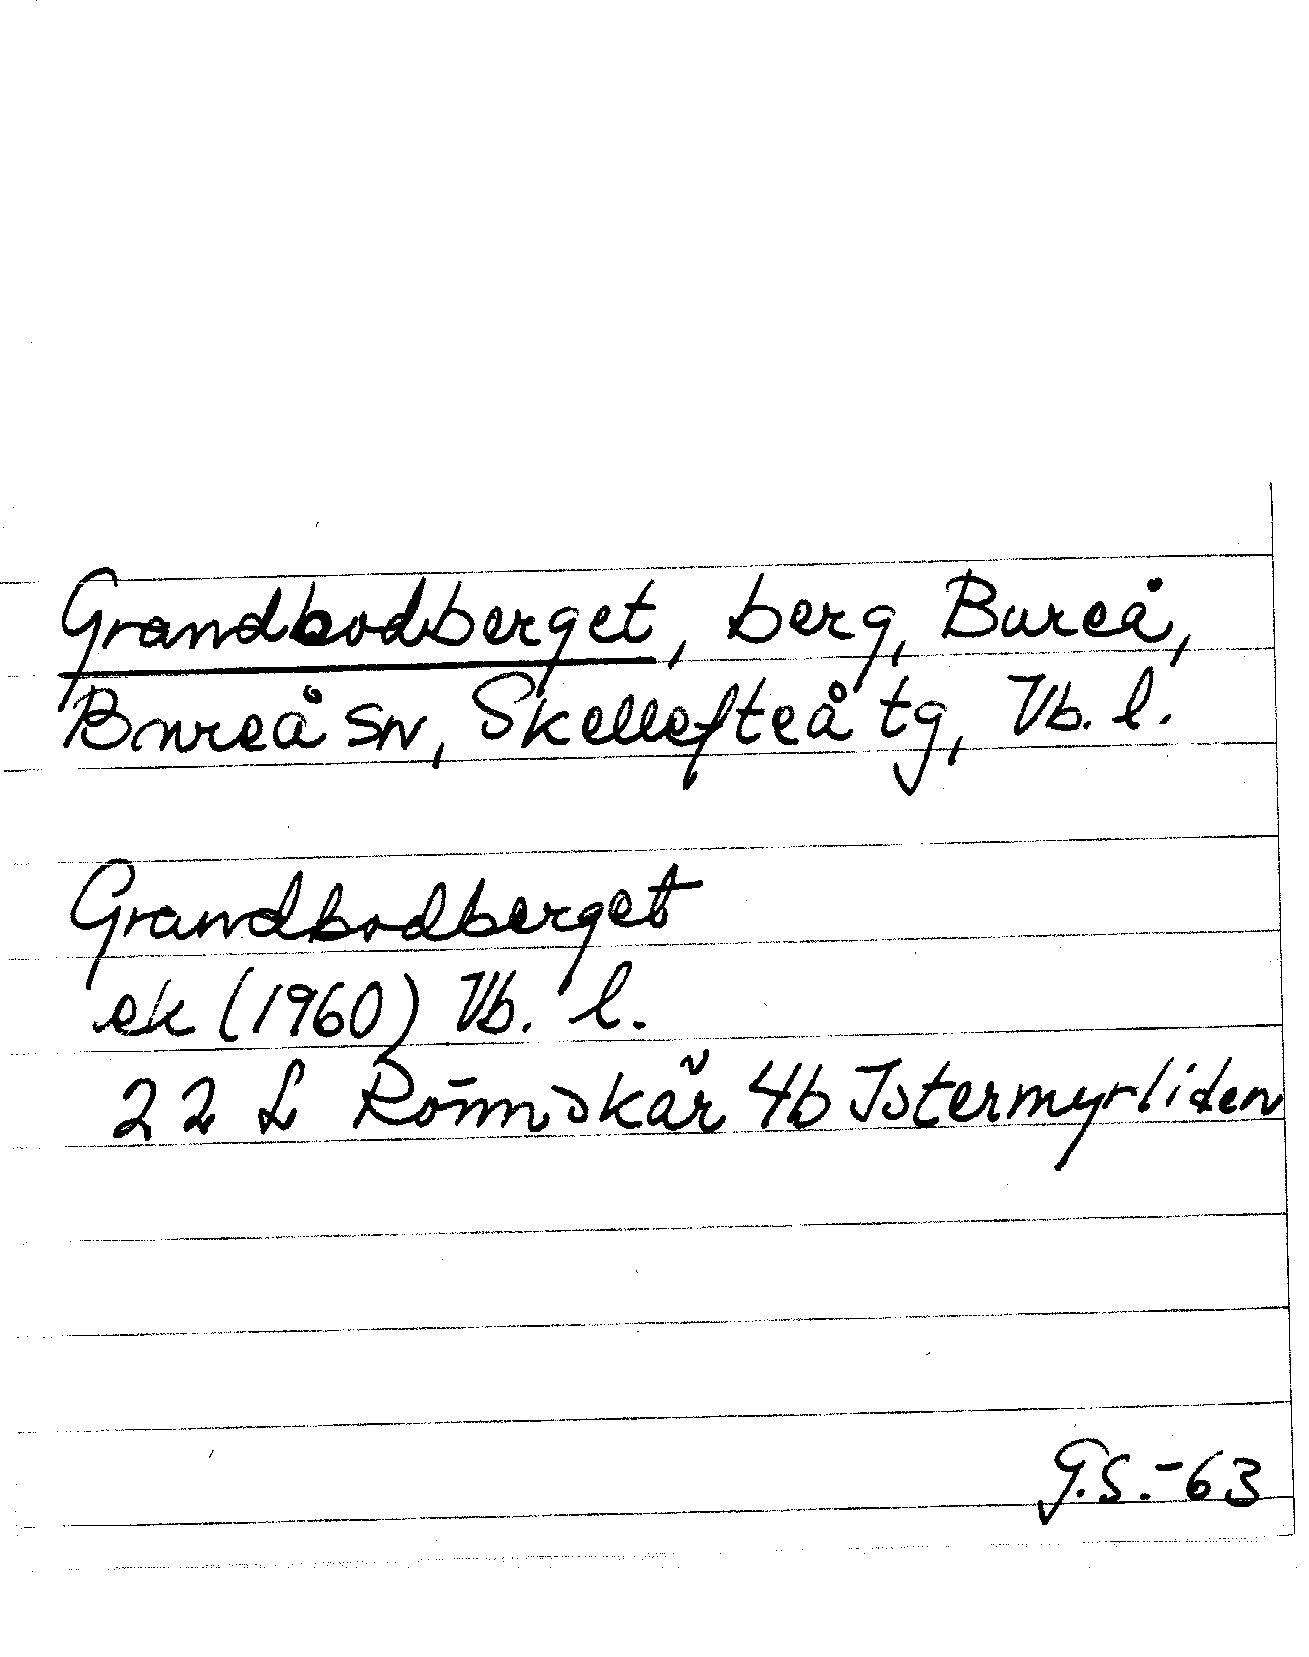 Grandbodberget, berg, Bureå,
Bureå sn, Skellefteå tg, Vb. l.
Grandbodberget
ek (1960) Vb. l.
22 L Rönnskär 4b Istermyrliden
G.S.-63